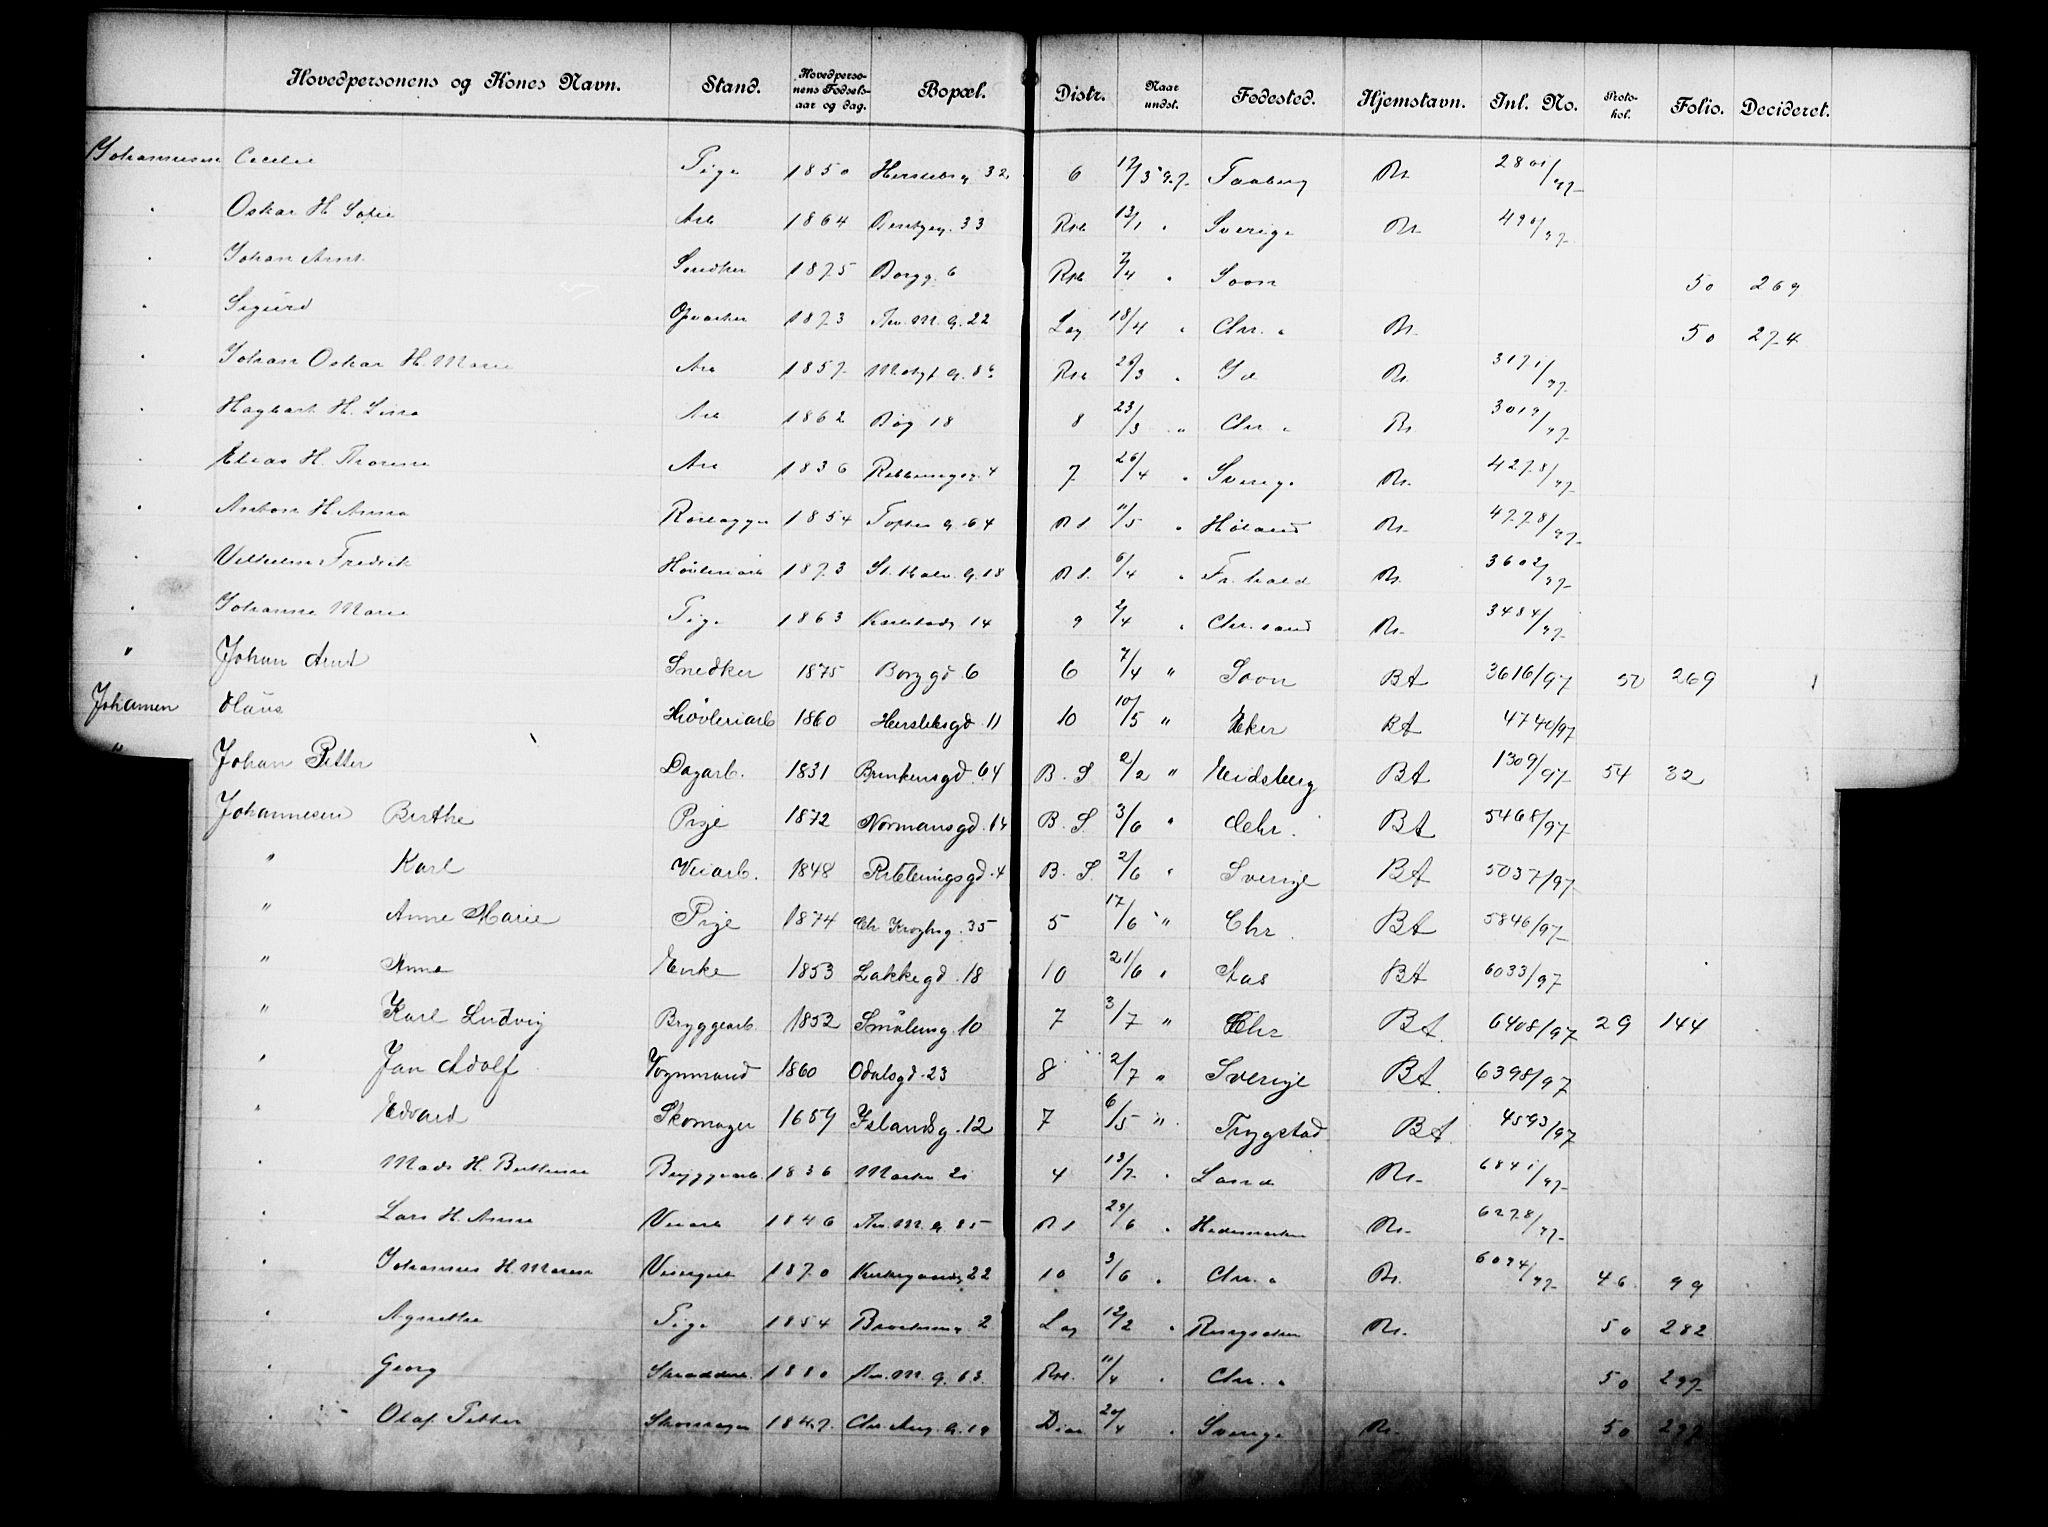 Hovedpersonens og Kones Navn. Stand. Hovedpersonens Fødselsaar og dag. Bopæl. Distr. Naar undst. Fødested. Hjemstavn. Inl. No. Protokol. Folio. Decideret.
Johannesen Cecilie Pige 1850 Herslebsg 32 6 12/3 97 Faaberg 2801/97
" Oskar H. Sofie Arb 1864 33 13/1 " Sverige 490/97
" Johan Arnt Snedker 1875 Borgg. 6 7/4 " Soon 50 269
" Sigurd Opvarter 1873 Th. M. G. 22 Lag 18/4 " Chr. " 50 274
" Johan Oskar H. Marie Arb 1857 26/3 " Id 3171/97
" Hagbart H. Lina Arb 1862 Bøg 18 8 23/3 " Chr " 3019/97
" Elias H. Thorine Arb 1836 4 7 26/4 " Sverige 4278/97
" Anton H Anna Rørlægger 1854 Toftes G. 64 11/5 " Høland 4778/97
" Vilhelm Fredrik Høvleriarb 1873 St. Halv. G. 18 6/4 " Fr. hald 3602/97
" Johanne Marie Pige 1863 Karlstadg 14 9 2/4 " Chr. sand 3484/97
" Johan Arnt Snedker 1875 Borggd 6 6 7/4 " Soon BA 3616/97 50 269
Johansen Hans Høvleriarb 1860 Herslebsgd 11 10 10/5 " Eker BA 4740/97
" Johan Petter Dagarb. 1831 Brinkensgd. 64 B. S 2/2 " Eidsberg BA 1309/97 54 32
Johannesen Berthe Pige 1872 Normansgd. 14 B. S. 3/6 " Chr. BA 5468/97
" Karl Veiarb. 1848 Rubbeningsgd. 4 B. S. 2/6 " Sverige BA 5037/97
" Anne Marie Pige 1874 Chr Kroghsg. 35 5 17/6 " Chr. BA 5846/97
" Anne Enke 1853 Lakkegd. 18 10 21/6 " Aas BA 6033/97
" Karl Ludvig Bryggearb. 1852 Smålensg. 10 7 3/7 " Chr BA 6408/97 29 144
" Jan Adolf Vognmand 1860 Odalsgd. 23 8 2/7 " Sverige BA 6398/97
" Edvard Skomager 1659 Islandsg. 12 7 6/5 " Trygstad BA 4593/97
" Mads H. Bryggearb. 1836 4 13/7 " Land 6841/97
" Lars H. Anne Veiarb 1846 Th. M. G. 85 29/6 " Hedemarken 6278/97
" Johannes H. Maren 1870 Kirkegaardsg 22 10 3/6 " Chr. " 6094/97 46 99
" Agnethe Pige 1854 2 Lag 12/2 " Ringsaker 50 282
" Georg 1880 Th. M. G. 63 11/4 " Chr. " 50 297
" Olaf Petter Skomager 1847 Chr. Aug. G. 19 20/4 " Sverige 50 297